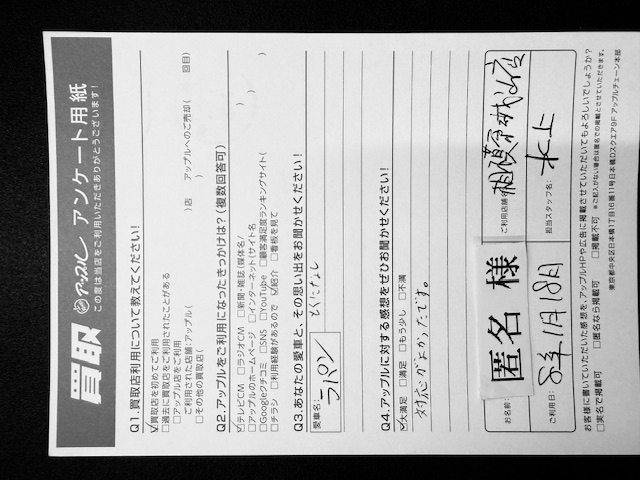 買取 アップル アンケート用紙
この度は当店をご利用いただきありがとうございます!
Q1.買取店利用について教えてください!
☑買取店を初めてご利用
□過去に買取店をご利用されたことがある
□アップル店をご利用
ご利用された店舗:アップル( )店 アップルへのご売却( 回目)
□その他の買取店( )
Q2.アップルをご利用になったきっかけは?(複数回答可)
☑テレビCM □ラジオCM □新聞・雑誌(媒体名/ )
□アップルのホームページ □インターネット(サイト名 )
□Googleクチコミ □SNS □YouTube □顧客満足度ランキングサイト( )
□チラシ □利用経験があるので ☑紹介 □看板を見て
Q3.あなたの愛車と、その思い出をお聞かせください!
愛車名: ラパン とくになし
Q4.アップルに対する感想をぜひお聞かせください!
☑大満足 □満足 □もう少し □不満
対応がよかったです。
お名前: 匿名 様
ご利用店舗名: 相模原
ご利用日: 8年1月18日
担当スタッフ名: 水上
お客様に書いていただいた感想を、アップルHPや広告に掲載させていただいてもよろしいでしょうか?
□実名で掲載可 □匿名なら掲載可 □掲載不可 ※ご記入がない場合は匿名での掲載とさせていただきます。
東京都中央区日本橋1丁目16番11号日本橋Dスクエア9F アップルチェーン本部